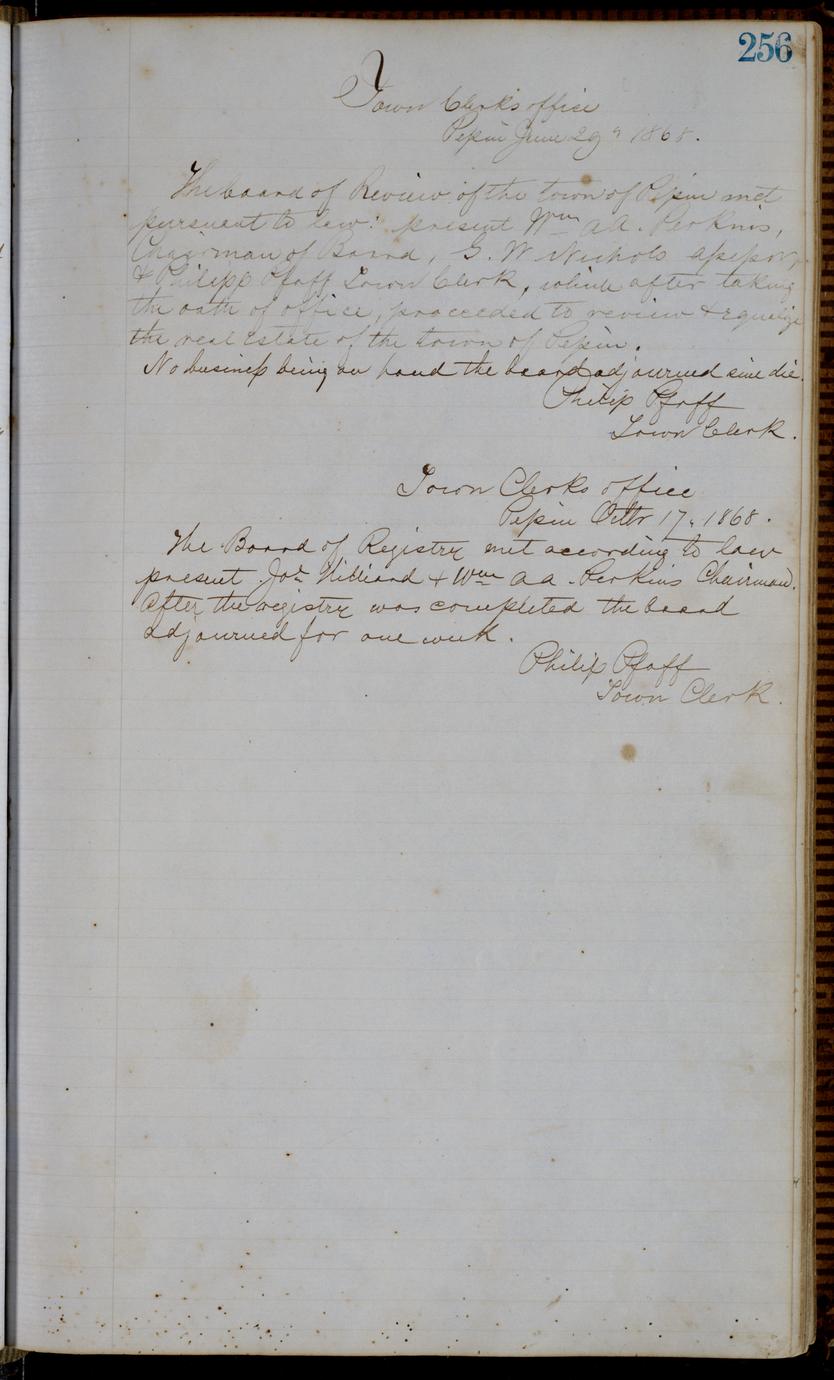 256
Town Clerks office
Pepin June 29th 1868.
The board of Review of the town of Pepin met
pursuant to law: present Wm AA. Perkins,
Chairman of Board, G. W Nichols assessor,
& Philipp Pfaff Town Clerk, which after taking
the oath of office, proceeded to review & equalize
the real estate of the town of Pepin.
No business being on hand the board adjourned sine die.
Philip Pfaff
Town Clerk.
Town Clerks office
Pepin Octbr 17, 1868.
The Board of Registry met according to law
present Jon Hilliard & Wm aa. Perkins Chairman.
After the registry was completed the board
adjourned for one week.
Philip Pfaff
Town Clerk.